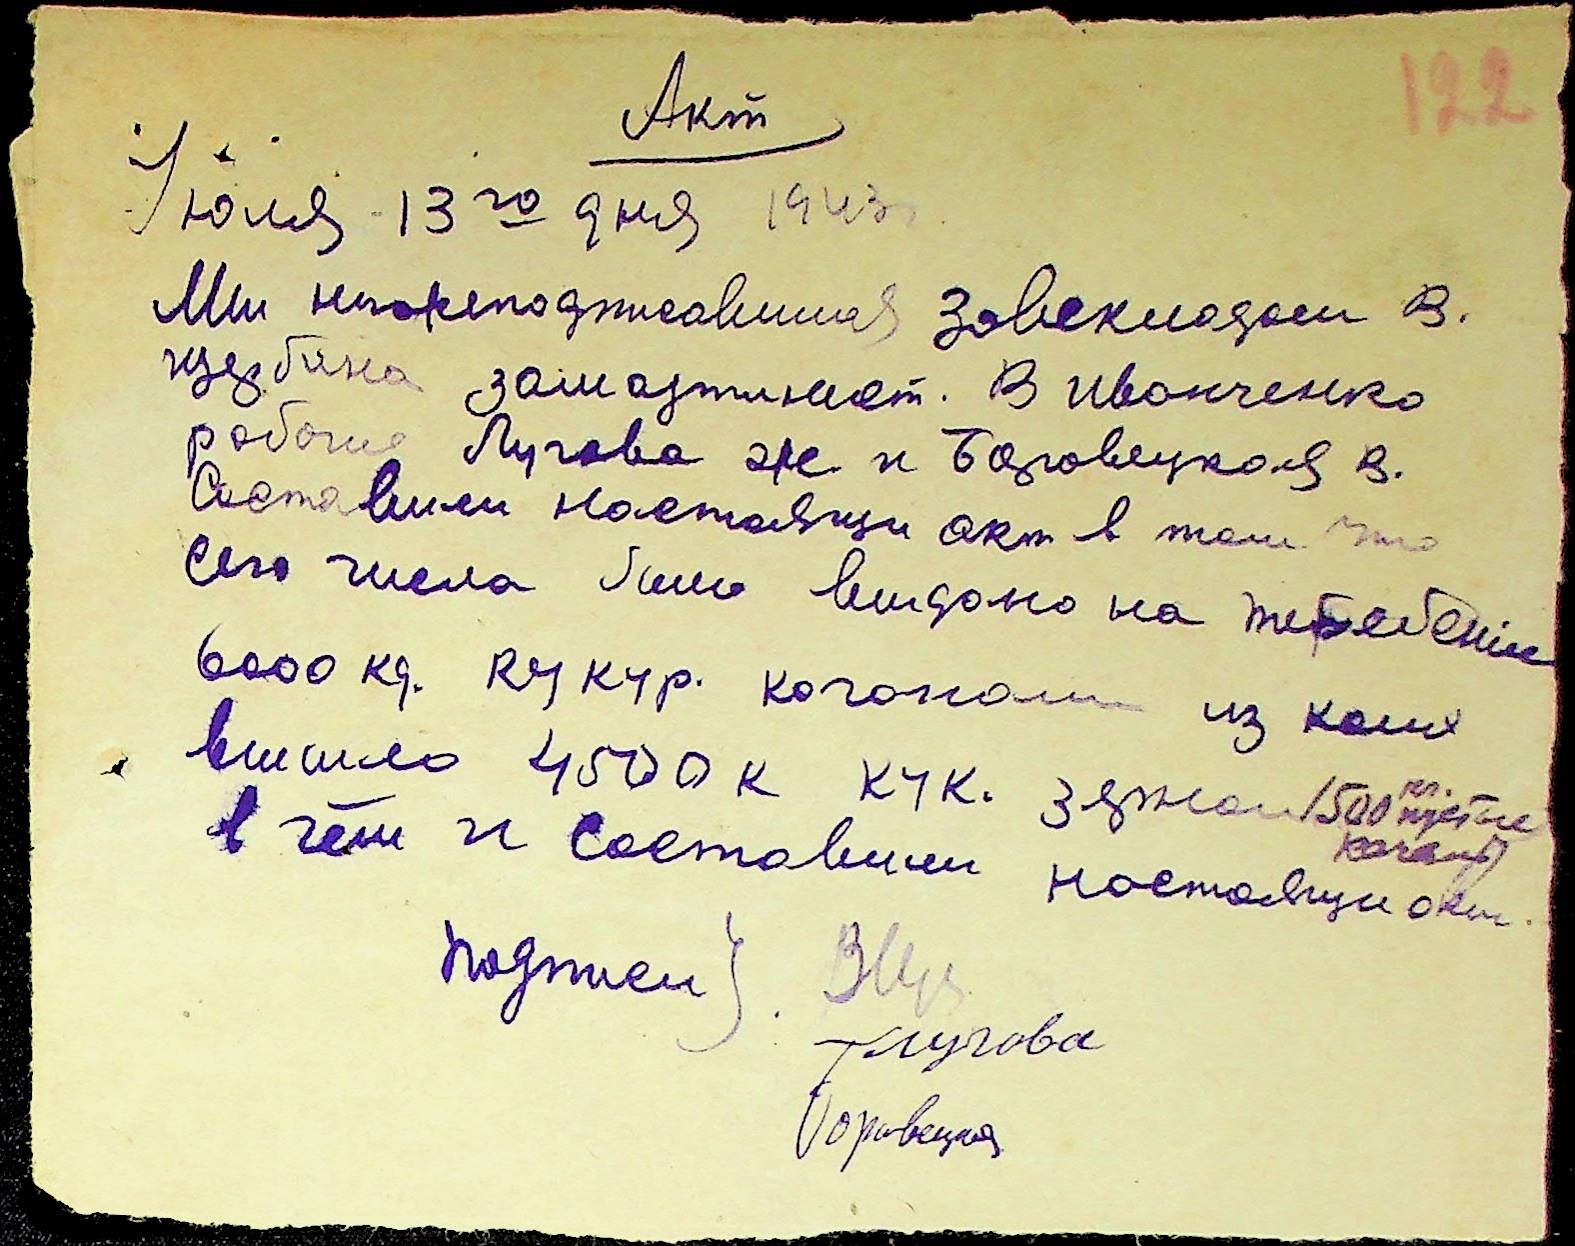 122
Акт
Июля 13го дня 1943г.
Ми нижеподписавшиая Завскладом В.
замадминист. В Иванченко
рабочие Лугова Ж. и Боровецкая В.
Составили настаящи акт в том что
сего числа било видано на теребеніе
6000 кг. кукур. кочонами из коих
вишло 4500 к кук. зерном 1500 кг. пустые
кочаны
в чём и Составили настаящи акт.
Подписи}.
Лугова
Боровецкая